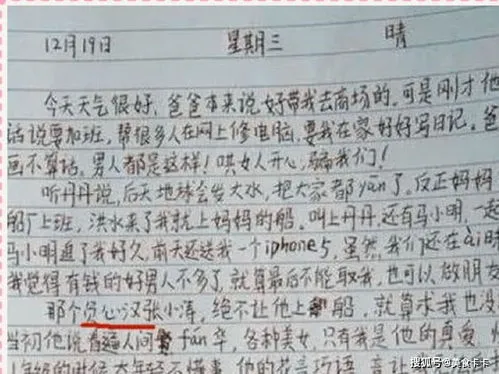 12月19日 星期三 晴
今天天气很好、爸爸本来说好带我去商场的. 可是刚才他
话说要加班, 帮很多人在网上修电脑. 要我在家好好写日记。爸
画不算话. 男人都是这样! 哄女人开心, 骗我们!
听丹丹说, 后天地球会发大水, 把大家都yān了, 反正妈妈
船厂上班, 洪水来了我就上妈妈的船。叫上丹丹, 还有马小明, 一起
马小明追了我好久, 前天还送我一个iphone5, 虽然我们还在ài时
我觉得有钱的好男人不多了, 就算最后不能取我, 也可以做朋友
那个负心汉张小涛, 绝不让他上船, 就算求我也没
当初他说看遍人间fán华, 各种美女, 只有我是他的真爱
搜狐号@美食卡卡